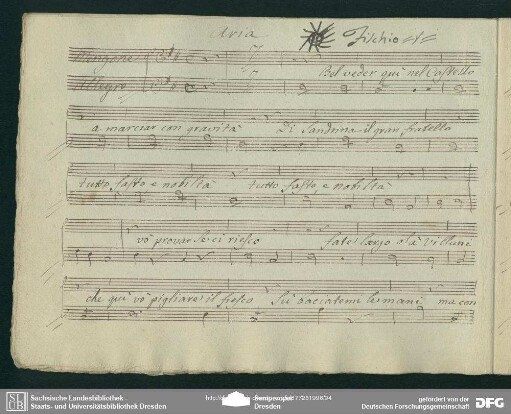 Aria Fischio
Mingone Bel veder qui nel Castello
Allegro
a marciar con gravità Di Sandrina il gran fratello
tutto fasto e nobiltà tutto fasto, e nobiltà
vò provar se ci riesco fate largo olà Villani
che qui vò pigliare il fresco Sù baciatemi le mani ma con
Sächsische Landesbibliothek -
Staats- und Universitätsbibliothek Dresden
Semperoper
Dresden
gefördert von der
Deutschen Forschungsgemeinschaft
DFG